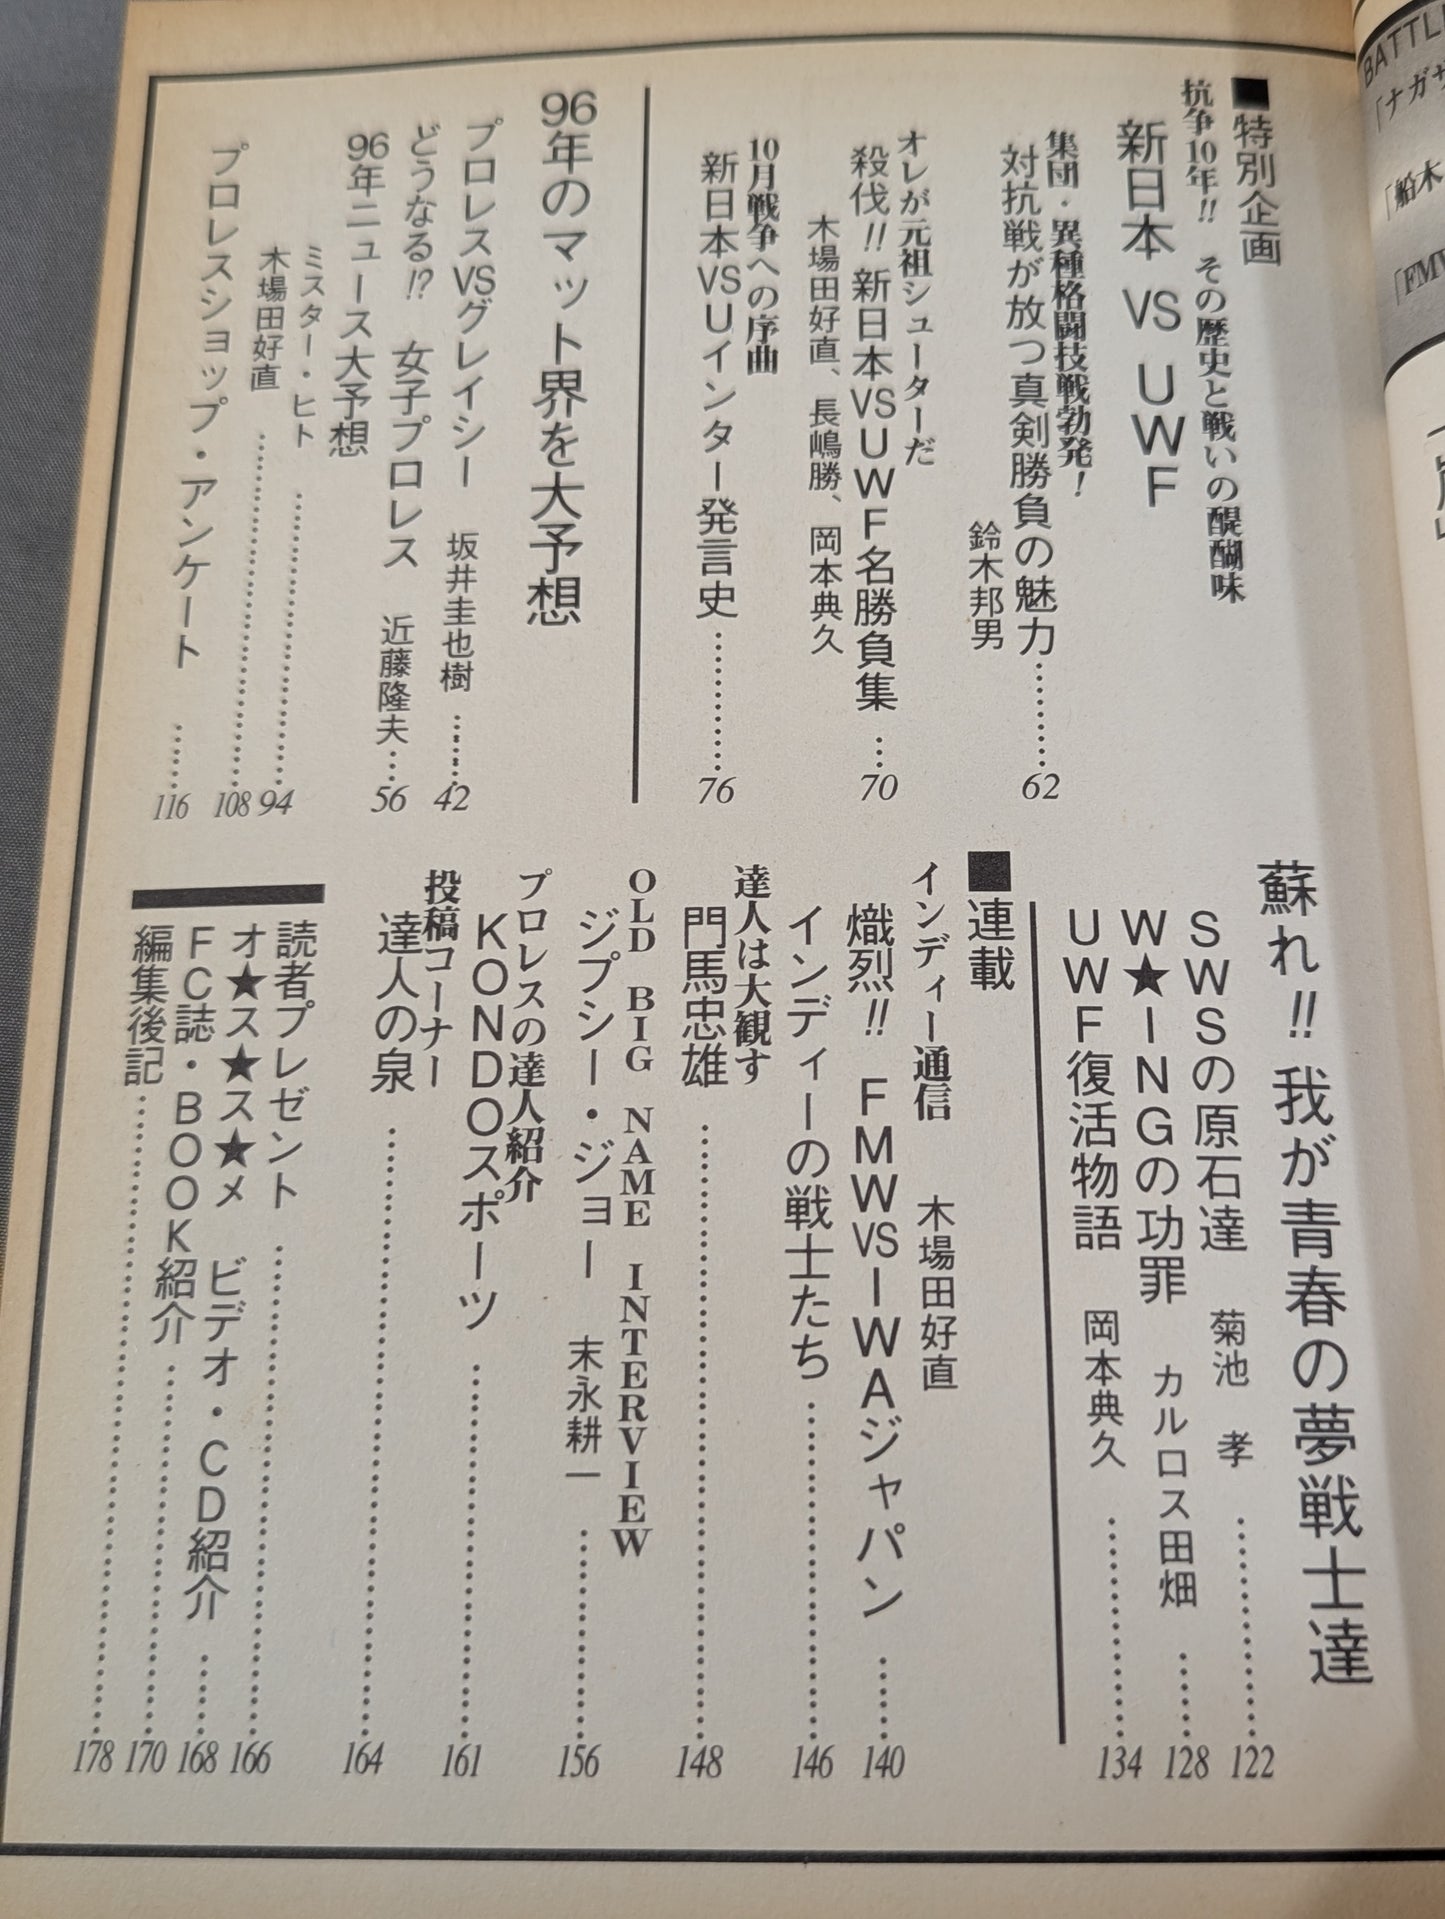 ■特別企画
抗争10年!! その歴史と戦いの醍醐味
新日本 VS UWF
集団・異種格闘技戦勃発!
対抗戦が放つ真剣勝負の魅力………62
鈴木邦男
オレが元祖シューターだ
殺伐!! 新日本VSUWF名勝負集…70
木場田好直、長嶋勝、岡本典久
10月戦争への序曲
新日本VSUインター発言史………76
96年のマット界を大予想
プロレスVSグレイシー 坂井圭也樹……42
どうなる!? 女子プロレス 近藤隆夫…56
96年ニュース大予想
ミスター・ヒト………94
木場田好直………108
プロレスショップ・アンケート……116
蘇れ!! 我が青春の夢戦士達
SWSの原石達 菊池 孝………122
W★INGの功罪 カルロス田畑……128
UWF復活物語 岡本典久………134
■連載
インディー通信 木場田好直
熾烈!! FMWVSIWAジャパン……140
インディーの戦士たち………146
達人は大観す
門馬忠雄………148
OLD BIG NAME INTERVIEW
ジプシー・ジョー 末永耕一………156
プロレスの達人紹介
KONDOスポーツ………161
投稿コーナー
達人の泉………164
読者プレゼント………166
オ★ス★ス★メ ビデオ・CD紹介……168
FC誌・BOOK紹介………170
編集後記………178
BATTL
「ナガサ
「船木
「FMW